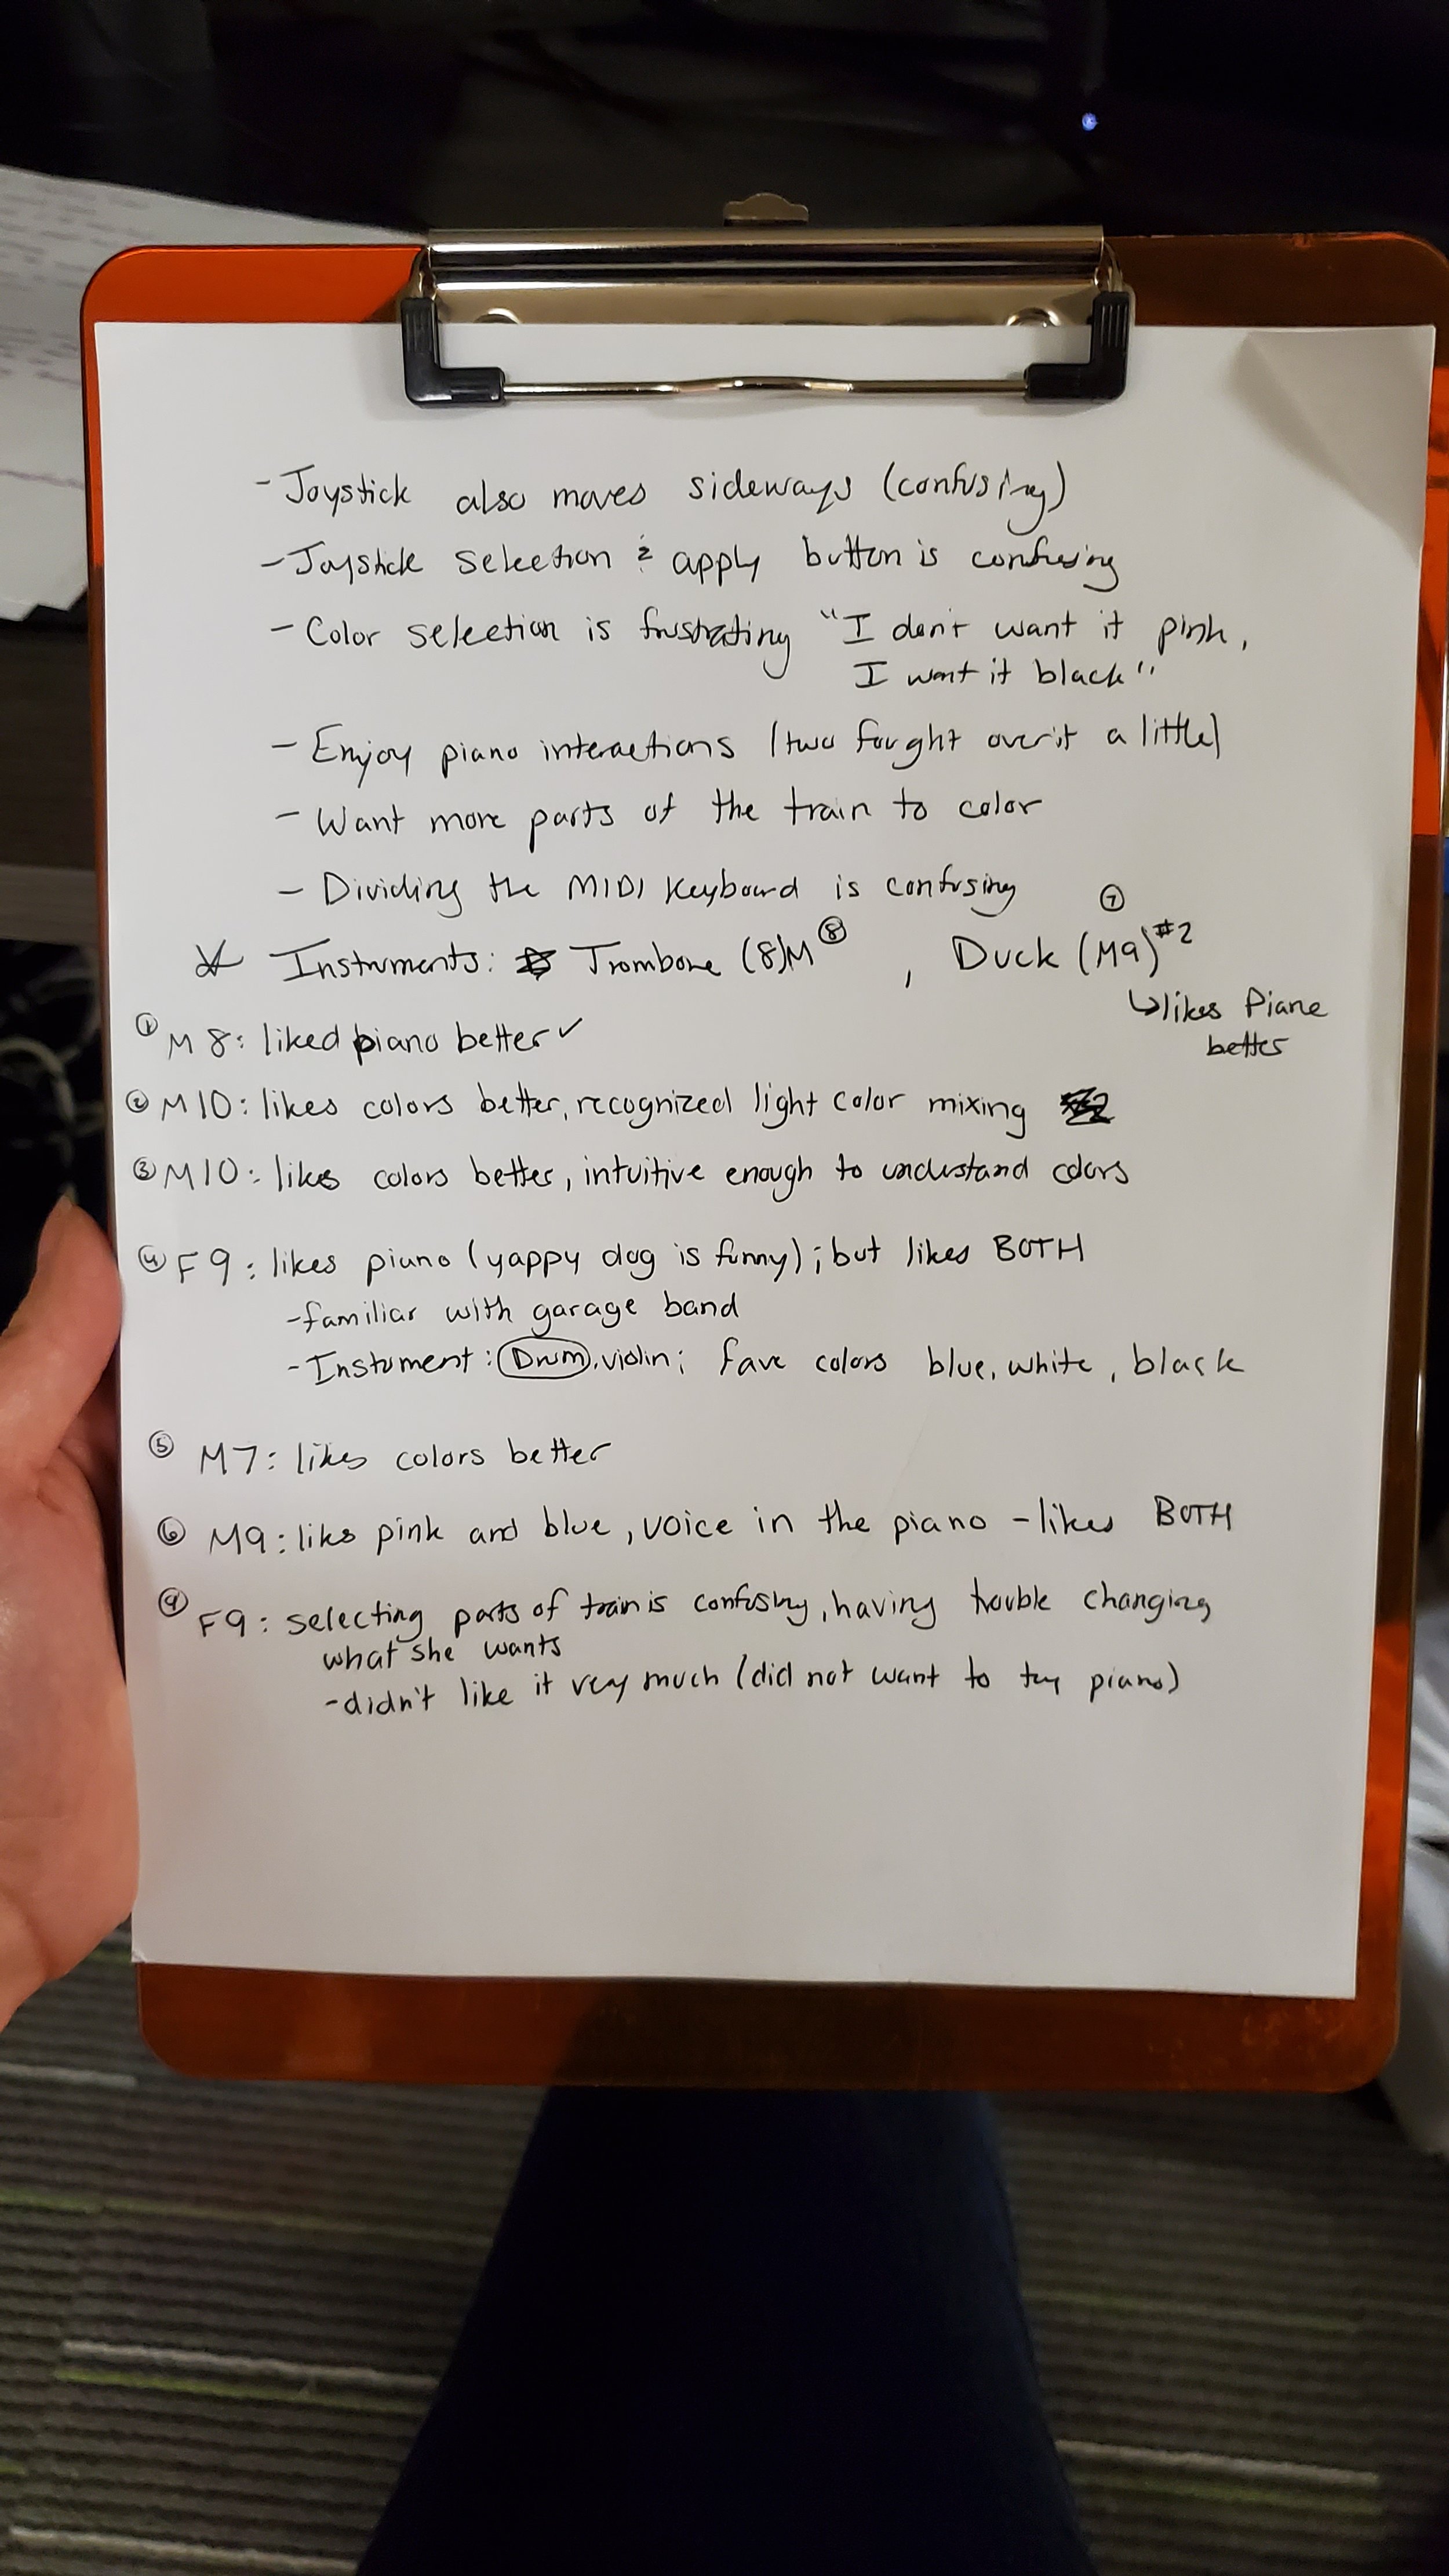 - Joystick also moves sideways (confusing)
- Joystick selection & apply button is confusing
- Color selection is frustrating "I don't want it pink,
I want it black"
- Enjoy piano interactions (two fought over it a little)
- Want more parts of the train to color
- Dividing the MIDI keyboard is confusing
⑦
* Instruments: Trombone (8)M ⑧, Duck (M9) #2
↳ likes Piano
better
① M 8: liked piano better ✓
② M10: likes colors better, recognized light color mixing
③ M10: likes colors better, intuitive enough to understand colors
④ F 9: likes piano (yappy dog is funny); but likes BOTH
- familiar with garage band
- Instument: Drum, violin; fave colors blue, white, black
⑤ M7: likes colors better
⑥ M9: likes pink and blue, voice in the piano - likes BOTH
⑨ F9: selecting parts of train is confusing, having trouble changing
what she wants
- didn't like it very much (did not want to try piano)